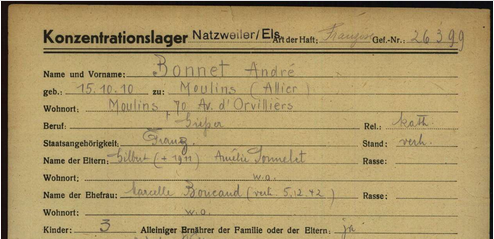 Konzentrationslager Natzweiler/Els. Art der Haft: Franzose Gef.-Nr.: 26399
Name und Vorname: Bonnet André
geb.: 15.10.10 zu: Moulins (Allier)
Wohnort: Moulins 70 Av. d'Orvilliers
Beruf: Rel.: kath.
Staatsangehörigkeit: Franz. Stand: verh.
Name der Eltern: Gilbert (+ 1911) Amélie Rasse:
Wohnort: w.o.
Name der Ehefrau: Marcelle Boucaud (verh. 5.12.42) Rasse:
Wohnort: w.o.
Kinder: 3 Alleiniger Ernährer der Familie oder der Eltern: ja